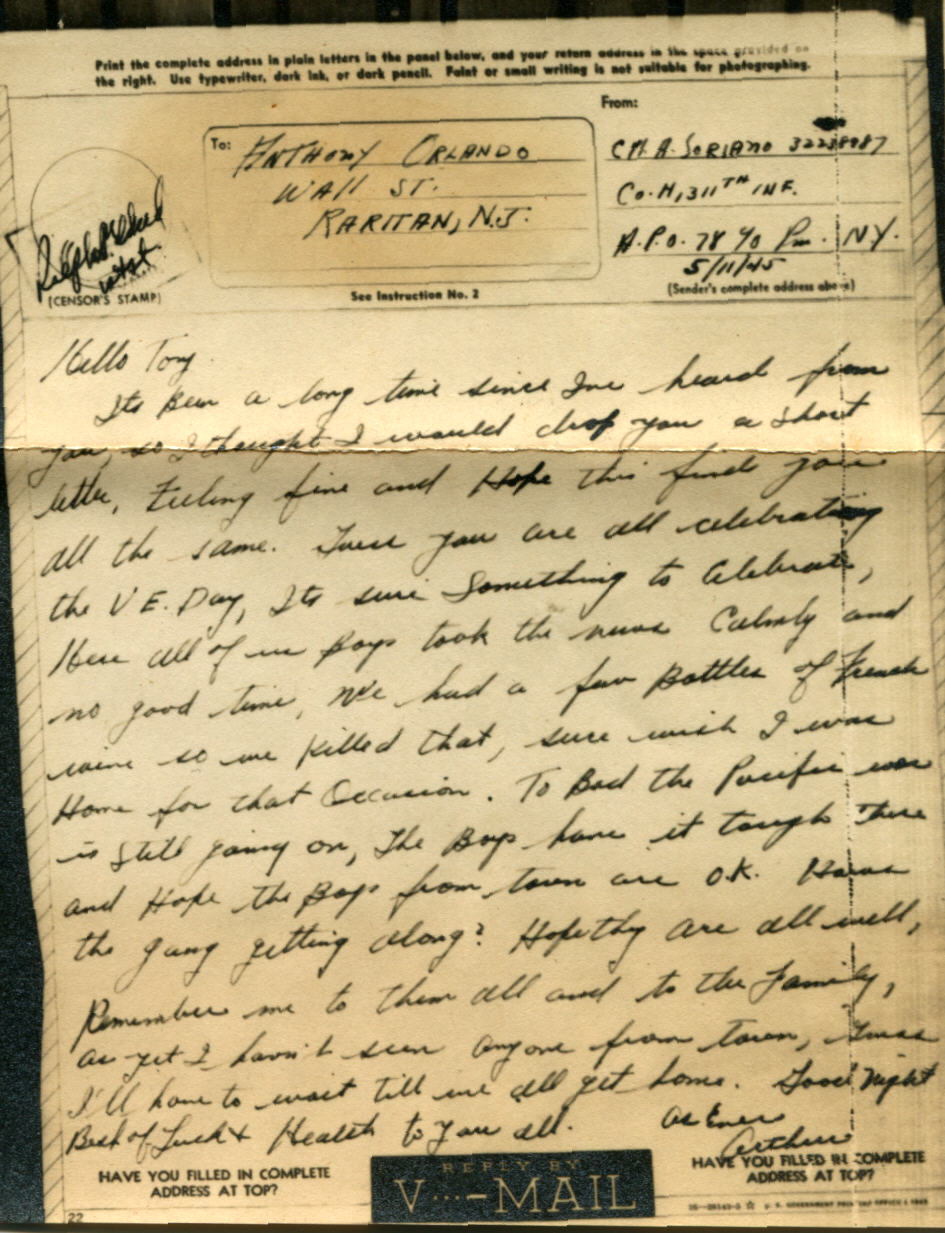 Print the complete address in plain letters in the panel below, and your return address in the space provided on
the right. Use typewriter, dark ink, or dark pencil. Faint or small writing is not suitable for photographing.
From:
To:
ANTHONY ORLANDO
WALL ST.
RARITAN, N.J.
A. SORIANO
CO. H, 311TH INF.
A.P.O. 78 % Pm. N.Y.
5/11/45
(CENSOR'S STAMP)
See Instruction No. 2
(Sender's complete address above)
Hello Tony
Its Been a long time since Ive heard from
you, so I thought I would drop you a short
letter, Feeling fine and Hope this find you
all the same. Guess you are all celebrating
the V E. Day, Its sure Something to Celebrate,
Here all of us Boys took the news Calmly and
no good time, We had a few Bottles of French
wine so we Killed that, sure wish I was
Home for that Occasion. To Bad the Pacific war
is still going on, The Boys have it tough There
and Hope the Boys from town are O.K. Hows
the gang getting along? Hope thy are all well,
Remember me to them all and to the Family,
as yet I havn't seen anyone from town, Guess
I'll have to wait till we all get home. Good Night
Best of Luck & Health to You all. As Ever
Arthur
HAVE YOU FILLED IN COMPLETE
ADDRESS AT TOP?
REPLY BY
V···—MAIL
HAVE YOU FILLED IN COMPLETE
ADDRESS AT TOP?
22